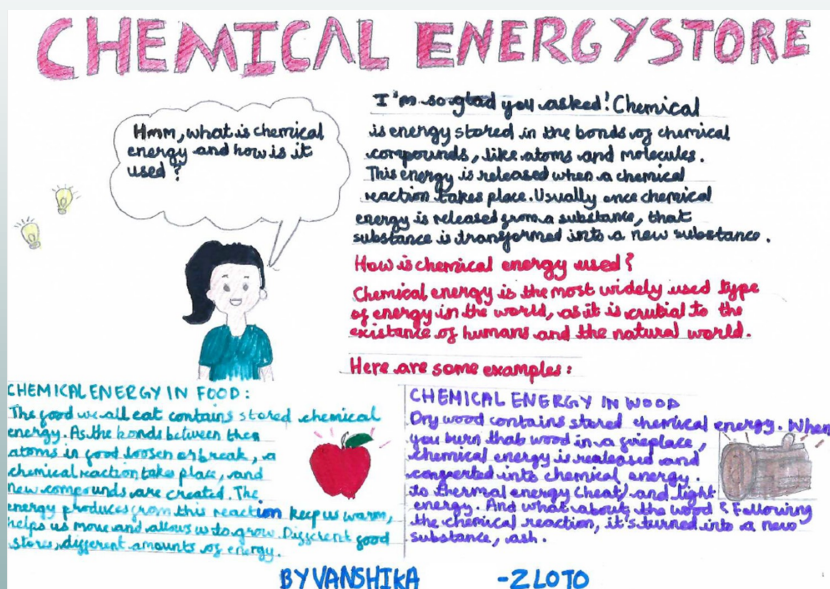 CHEMICAL ENERGYSTORE
Hmm, what is chemical
energy and how is it
used?
I'm so glad you asked! Chemical
is energy stored in the bonds of chemical
compounds, like atoms and molecules.
This energy is released when a chemical
reaction takes place. Usually once chemical
energy is released from a substance, that
substance is transformed into a new substance.
How is chemical energy used?
Chemical energy is the most widely used type
of energy in the world, as it is crutial to the
existance of humans and the natural world.
Here are some examples:
CHEMICAL ENERGY IN FOOD:
The food we all eat contains stored chemical
energy. As the bonds between then
atoms in food loosen or break, a
chemical reaction takes place, and
new compounds are created. The
energy produces from this reaction keep us warm,
helps us move and allows us to grow. Different food
stores, different amounts of energy.
CHEMICAL ENERGY IN WOOD
Dry wood contains stored chemical energy. When
you burn that wood in a fireplace,
chemical energy is realeased and
converted into chemical energy.
to thermal energy (heat) and light
energy. And what about the wood? Following
the chemical reaction, it's turned into a new
substance, ash.
BY VANSHIKA -ZLOTO